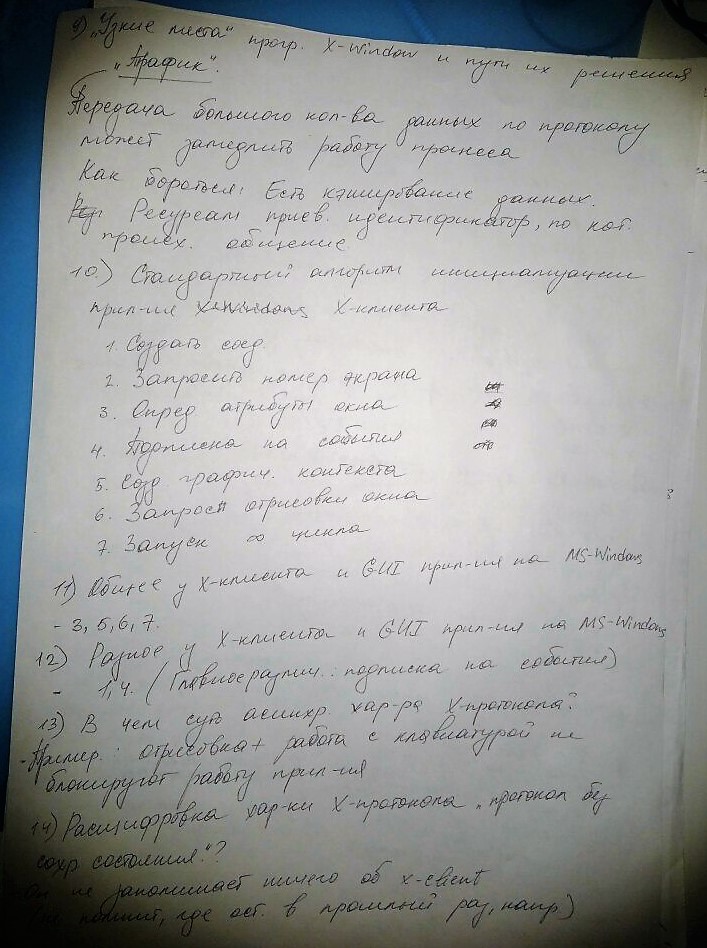 9) „Узкие места" прогр. X-Window и пути их решения
„Трафик".
Передача большого кол-ва данных по протоколу
может замедлить работу процесса
Как бороться: Есть кэширование данных.
Ресурсам присв. идентификатор, по кот.
происх. общение.
10) Стандартный алгоритм инициализации
прил-ия X-клиента
1. Создать соед.
2. Запросить номер экрана
3. Опред атрибуты окна
4. Подписка на события
5. Созд графич. контекста
6. Запрос отрисовки окна
7. Запуск ∞ цикла
11) Общее у X-клиента и GUI прил-ия на MS-Windows
- 3, 5, 6, 7.
12) Разное у X-клиента и GUI прил-ия на MS-Windows
- 1, 4. (Главное различ.: подписка на события)
13) В чем суть асинхр. хар-ра X-протокола?
- Пример.: отрисовка + работа с клавиатурой не
блокируют работу прил-ия
14) Расшифровка хар-ки X-протокола „протокол без
сохр состояния"?
Он не запоминает ничего об x-client
помнит, где ост. в прошлый раз, напр)